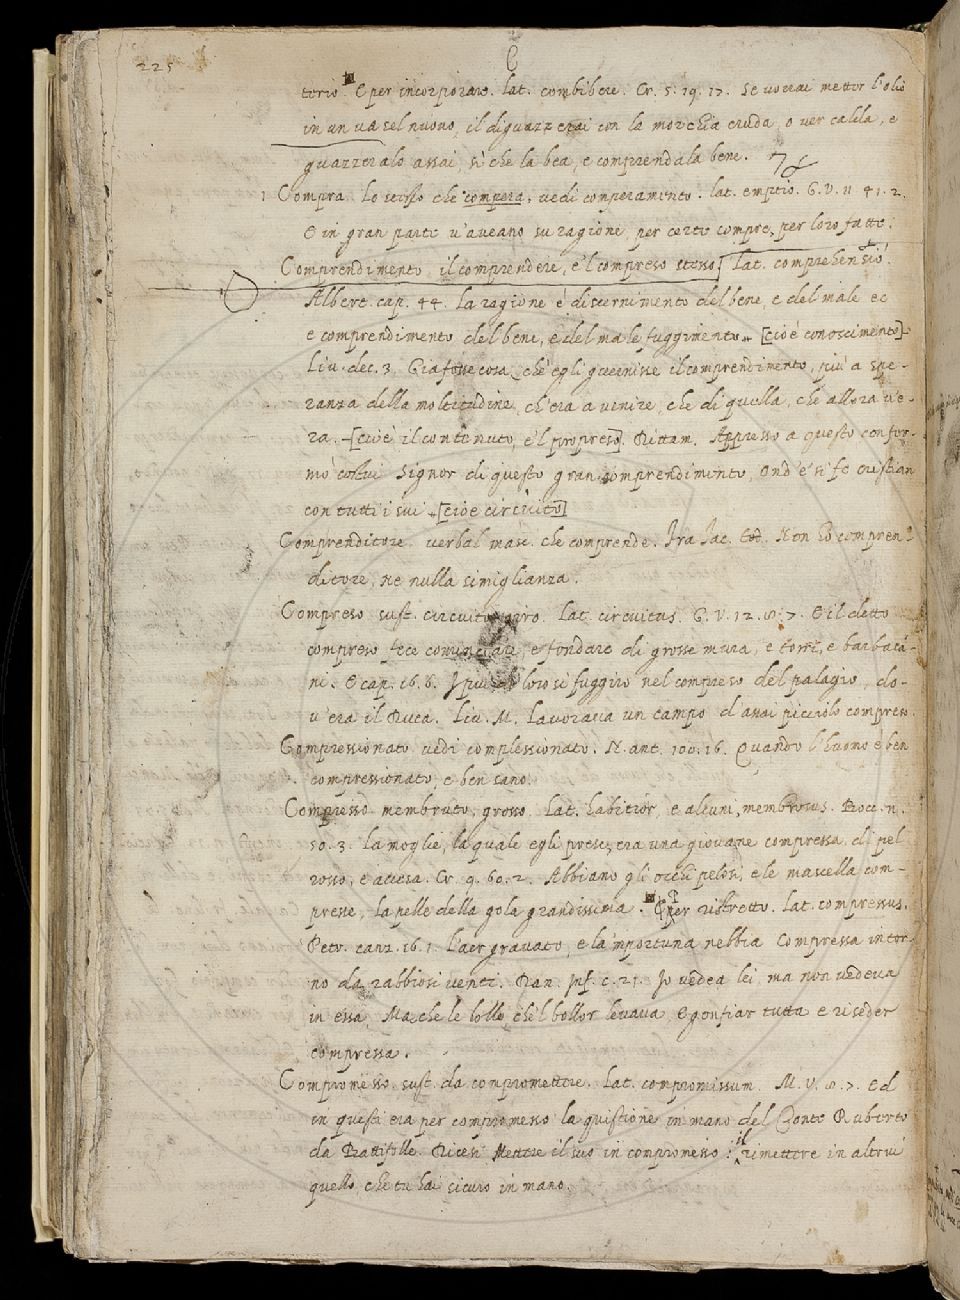 225
C
torio. E per incorporare. lat. combibere. Cr. 5. 19. 17. Se vorrai metter l'olio
in un vasel nuovo, il diguazzerai con la morchia cruda, o ver calda, e
guazzeralo assai, sì che la bea, e comprendala bene.
1 Compra. Lo stesso che compera, vedi comperamento. lat. emptio. G. V. 11 41. 2.
E in gran parte v'aveano su ragione, per certe compre, per loro fatte.
Comprendimento, il comprendere, e'l compreso stesso. lat. comprehensio.
Albert. cap. 44. la ragione è discernimento del bene, e del male ec
e comprendimento del bene, e del male fuggimento. [cioè conoscimento]
Liv. dec. 3. Gia fosse cosa, ch'egli gueernisse il comprendimento, più a spe-
ranza della moltitudine, ch'era a venire, che di quella, che allora v'e-
ra. [cioè il contenuto, e'l propreso] Dittam. Appresso a questo confor-
mò costui Signor di questo gran comprendimento, Ond'e' si fe cristian
con tutti i sui [cioè circuito]
Comprenditore. verbal masc. che comprende. Fra Iac. Tod. Non ho compren-
ditore, ne nulla simiglianza.
Compreso sust. circuito, giro. Lat. circuitus. G. V. 12. 8. 7. E il detto
compreso fece cominciare, e fondare di grosse mura, e torri, e barbaca-
ni. E cap. 16. 6. I più loro si fuggiro nel compreso del palagio, do-
v'era il Duca. Liv. M. Lavorava un campo d'assai picciolo compreso.
Compressionato vedi complessionato. N. ant. 100. 16. Quando l'huomo è ben
compressionato, e ben sano.
Compresso membruto, grosso. lat. habitior, e alcuni, membrosus. Bocc. n.
50. 3. La moglie, la quale egli prese, era una giovane compressa, di pel
rosso, e accesa. Cr. 9. 60. 2. Abbiano gli occhi pelosi, e le mascella com-
presse, la pelle della gola grandissima. E per ristretto. lat. compressus.
Petr. canz. 16. 1. L'aer gravato, e la 'mportuna nebbia Compressa intor-
no da rabbiosi venti. Dan. Inf. c. 21. Io vedea lei, ma non vedeva
in essa, Ma che le bolle, che'l bollor levava, E gonfiar tutta e riseder
compressa.
Compromesso sust. da conpromettere. Lat. compromissum. M. V. 8. 7. Ed
in questi era per compromesso la quistione in mano del Conte Ruberto
da Battifolle. Dicesi Mettere il suo in compromesso: il rimettere in altrui
quello, che tu hai sicuro in mano.